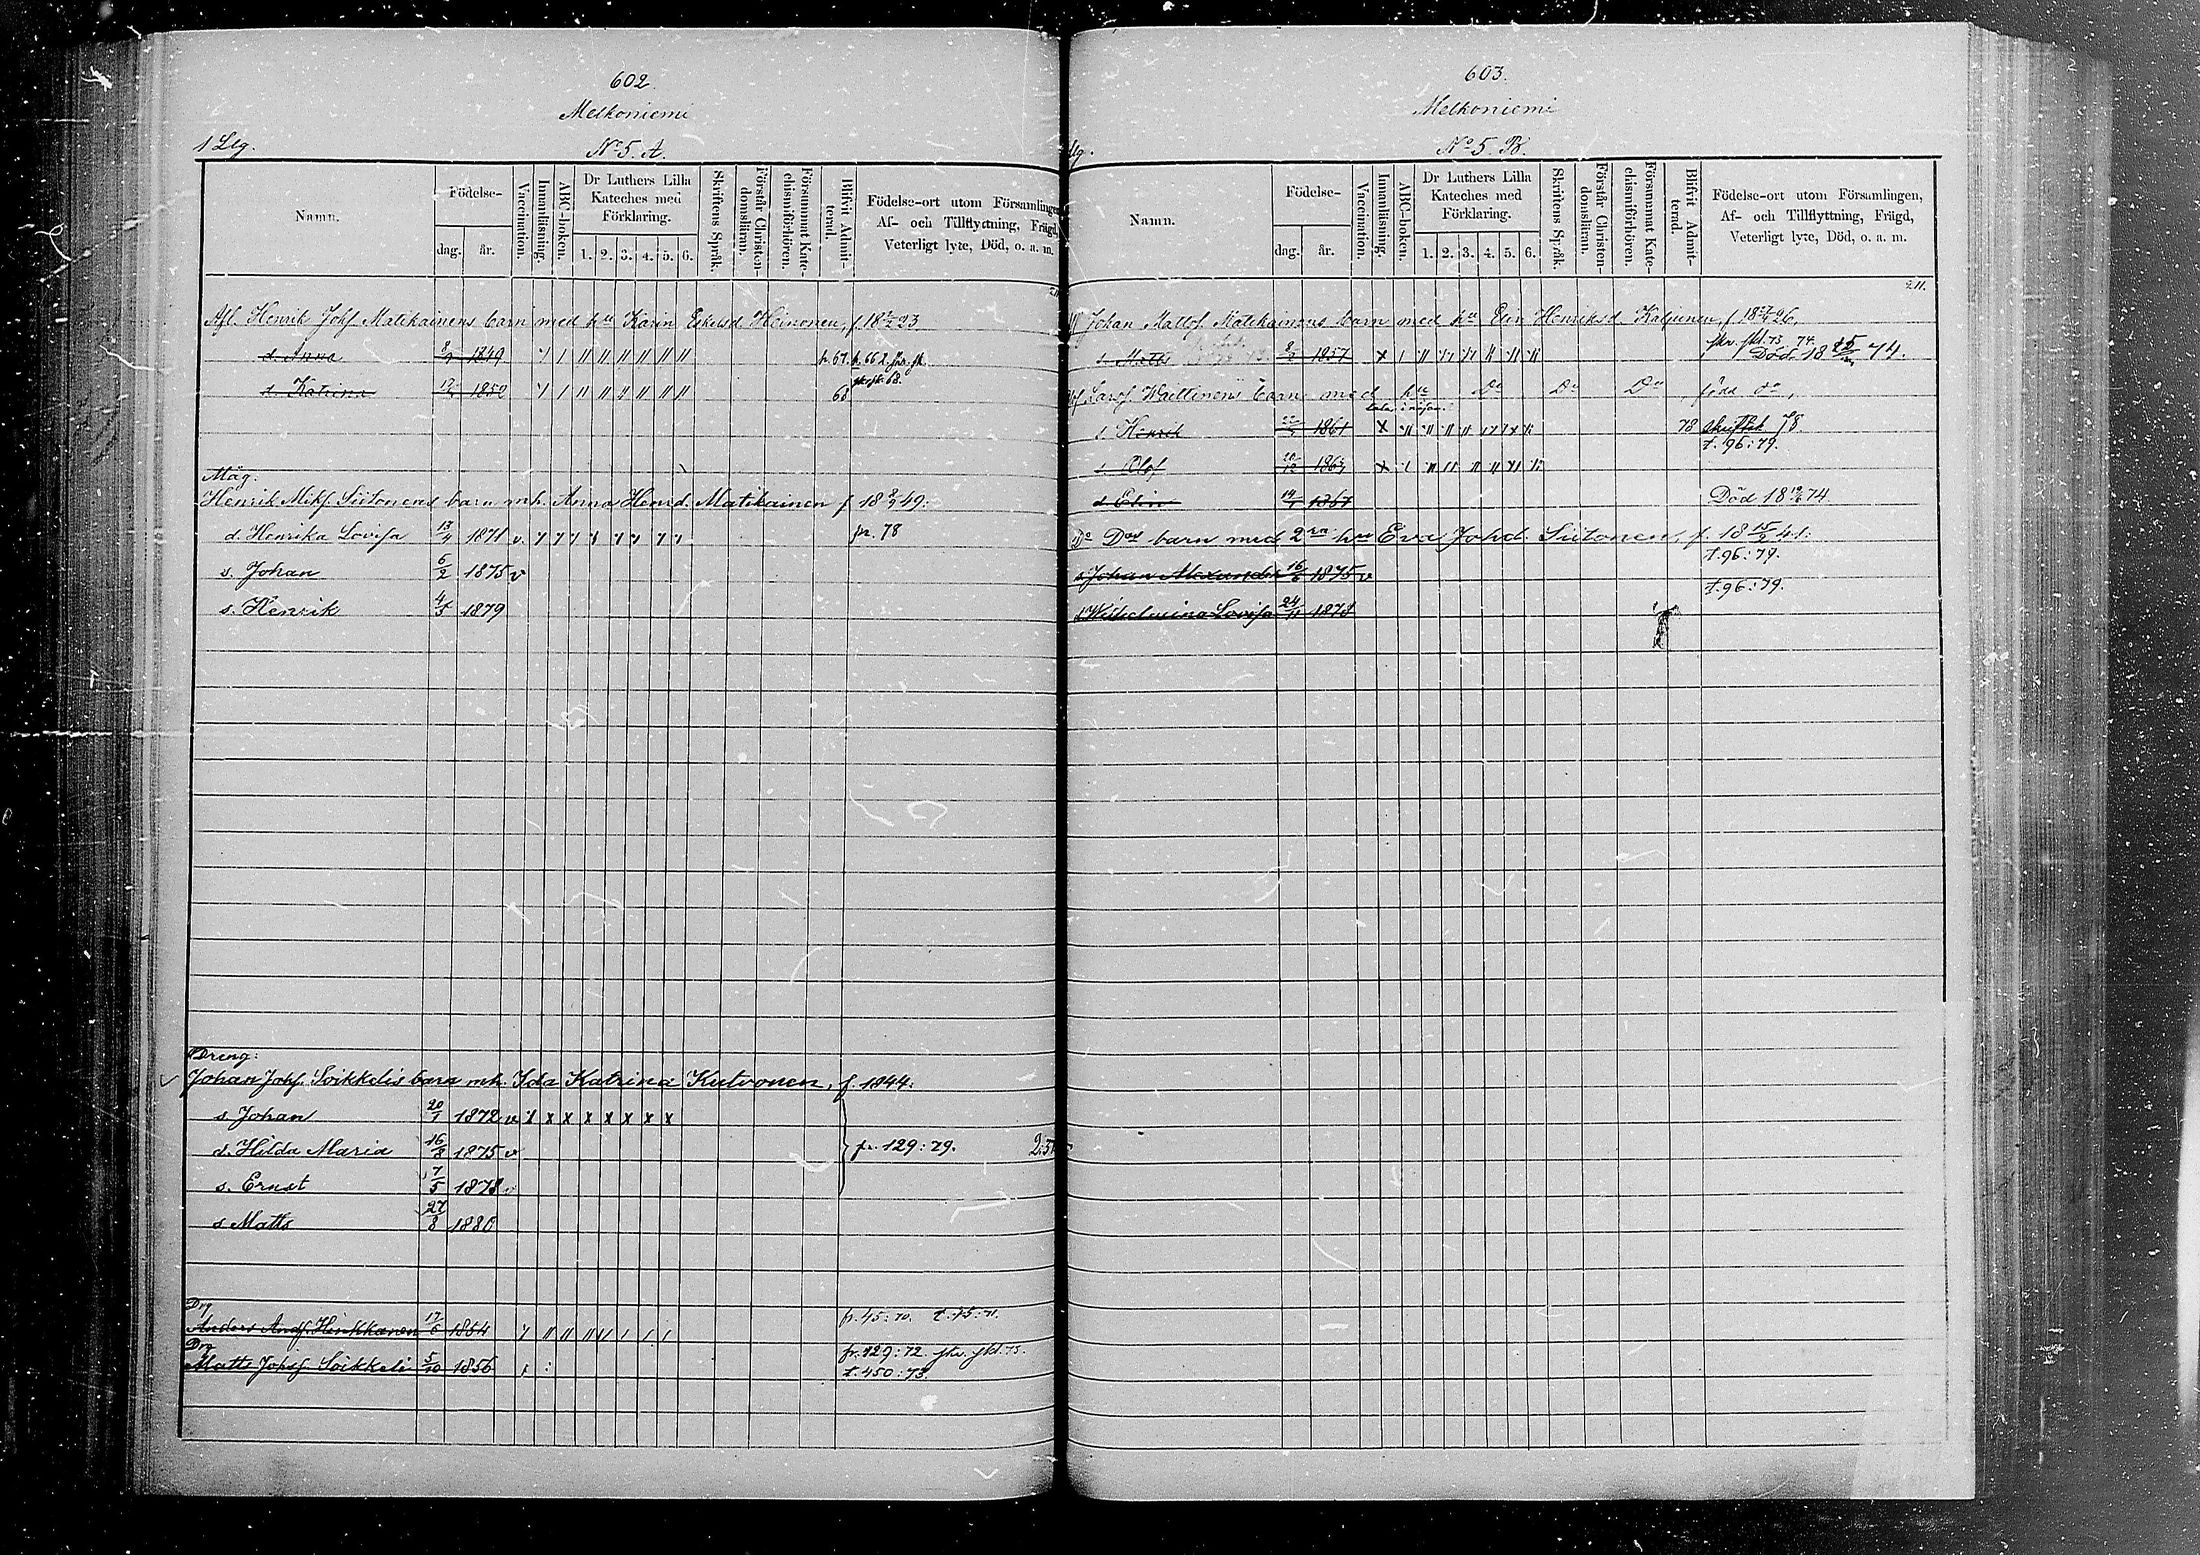 602.
Melkoniemi
1 Llg.
No 5. A.
Namn.
Födelse-
dag.
år.
Vaccination.
Innanläsning.
ABC-boken.
Dr Luthers Lilla
Kateches med
Förklaring.
1. 2. 3. 4. 5. 6.
Skriftens Språk.
Förstår Christen-
domsläran.
Försummat Kate-
chismiförhören.
Blifvit Admit-
terad.
Födelse-ort utom Församlingen,
Af- och Tillflyttning, Frägd,
Veterligt lyte, Död, o. a. m.
Afl. Henrik Johf Matikainens barn med hu Karin Eskelsd Heinonen, f. 18 23
d. Anna 8/9 1849 67
d. Katrina 1850 68
Måg.
Henrik Mikf. Siitonens barn mh. Anna Henrd. Matikainen f 18 8/9 49:
d. Henrika Lovisa 13/4 1871 v. fr. 78
s. Johan 6/2 1875 v
s. Henrik 4/5 1879
Dreng:
Johan Johf. Soikkelis barn mh. Ida Katrina Kutvonen, f. 1844:
s. Johan 20/1 1872 v x x x x x x x
d. Hilda Maria 16/8 1875 v fr. 129:79.
s. Ernst 7/5 1878 v
s Matts 27/8 1880
Drg
Anders Andf. Hinkkanen 17/6 1854 fr. 45:70. t. 45:71.
Drg
Matts Johf. Soikkeli 5/10 1856 fr. 129:72. skr. skl. 75.
t. 450:73.
603.
Melkoniemi
No 5. B.
Namn.
Födelse-
dag.
år.
Vaccination.
Innanläsning.
ABC-boken.
Dr Luthers Lilla
Kateches med
Förklaring.
1. 2. 3. 4. 5. 6.
Skriftens Språk.
Förstår Christen-
domsläran.
Försummat Kate-
chismiförhören.
Blifvit Admit-
terad.
Födelse-ort utom Församlingen,
Af- och Tillflyttning, Frägd,
Veterligt lyte, Död, o. a. m.
Johan Mattsf. Matikainens barn med hu Elin Henriksd. f. 18 26,
s. Matts 8/2 1857 x Död 18 74.
Larsf. barn med hu Do Do Do född do,
s. Henrik 1861 x 78 78
t. 96:79.
s. Olof 10/12 x
d. Elin 1867 Död 18 74
Do Dos barn med 2ra hu Eva Johd. Siitonen, f. 18 41:
t. 96:79.
s Johan Alexander 16/6 1875 v
t. 96:79.
d Wilhelmina Lovisa 24/11 1878